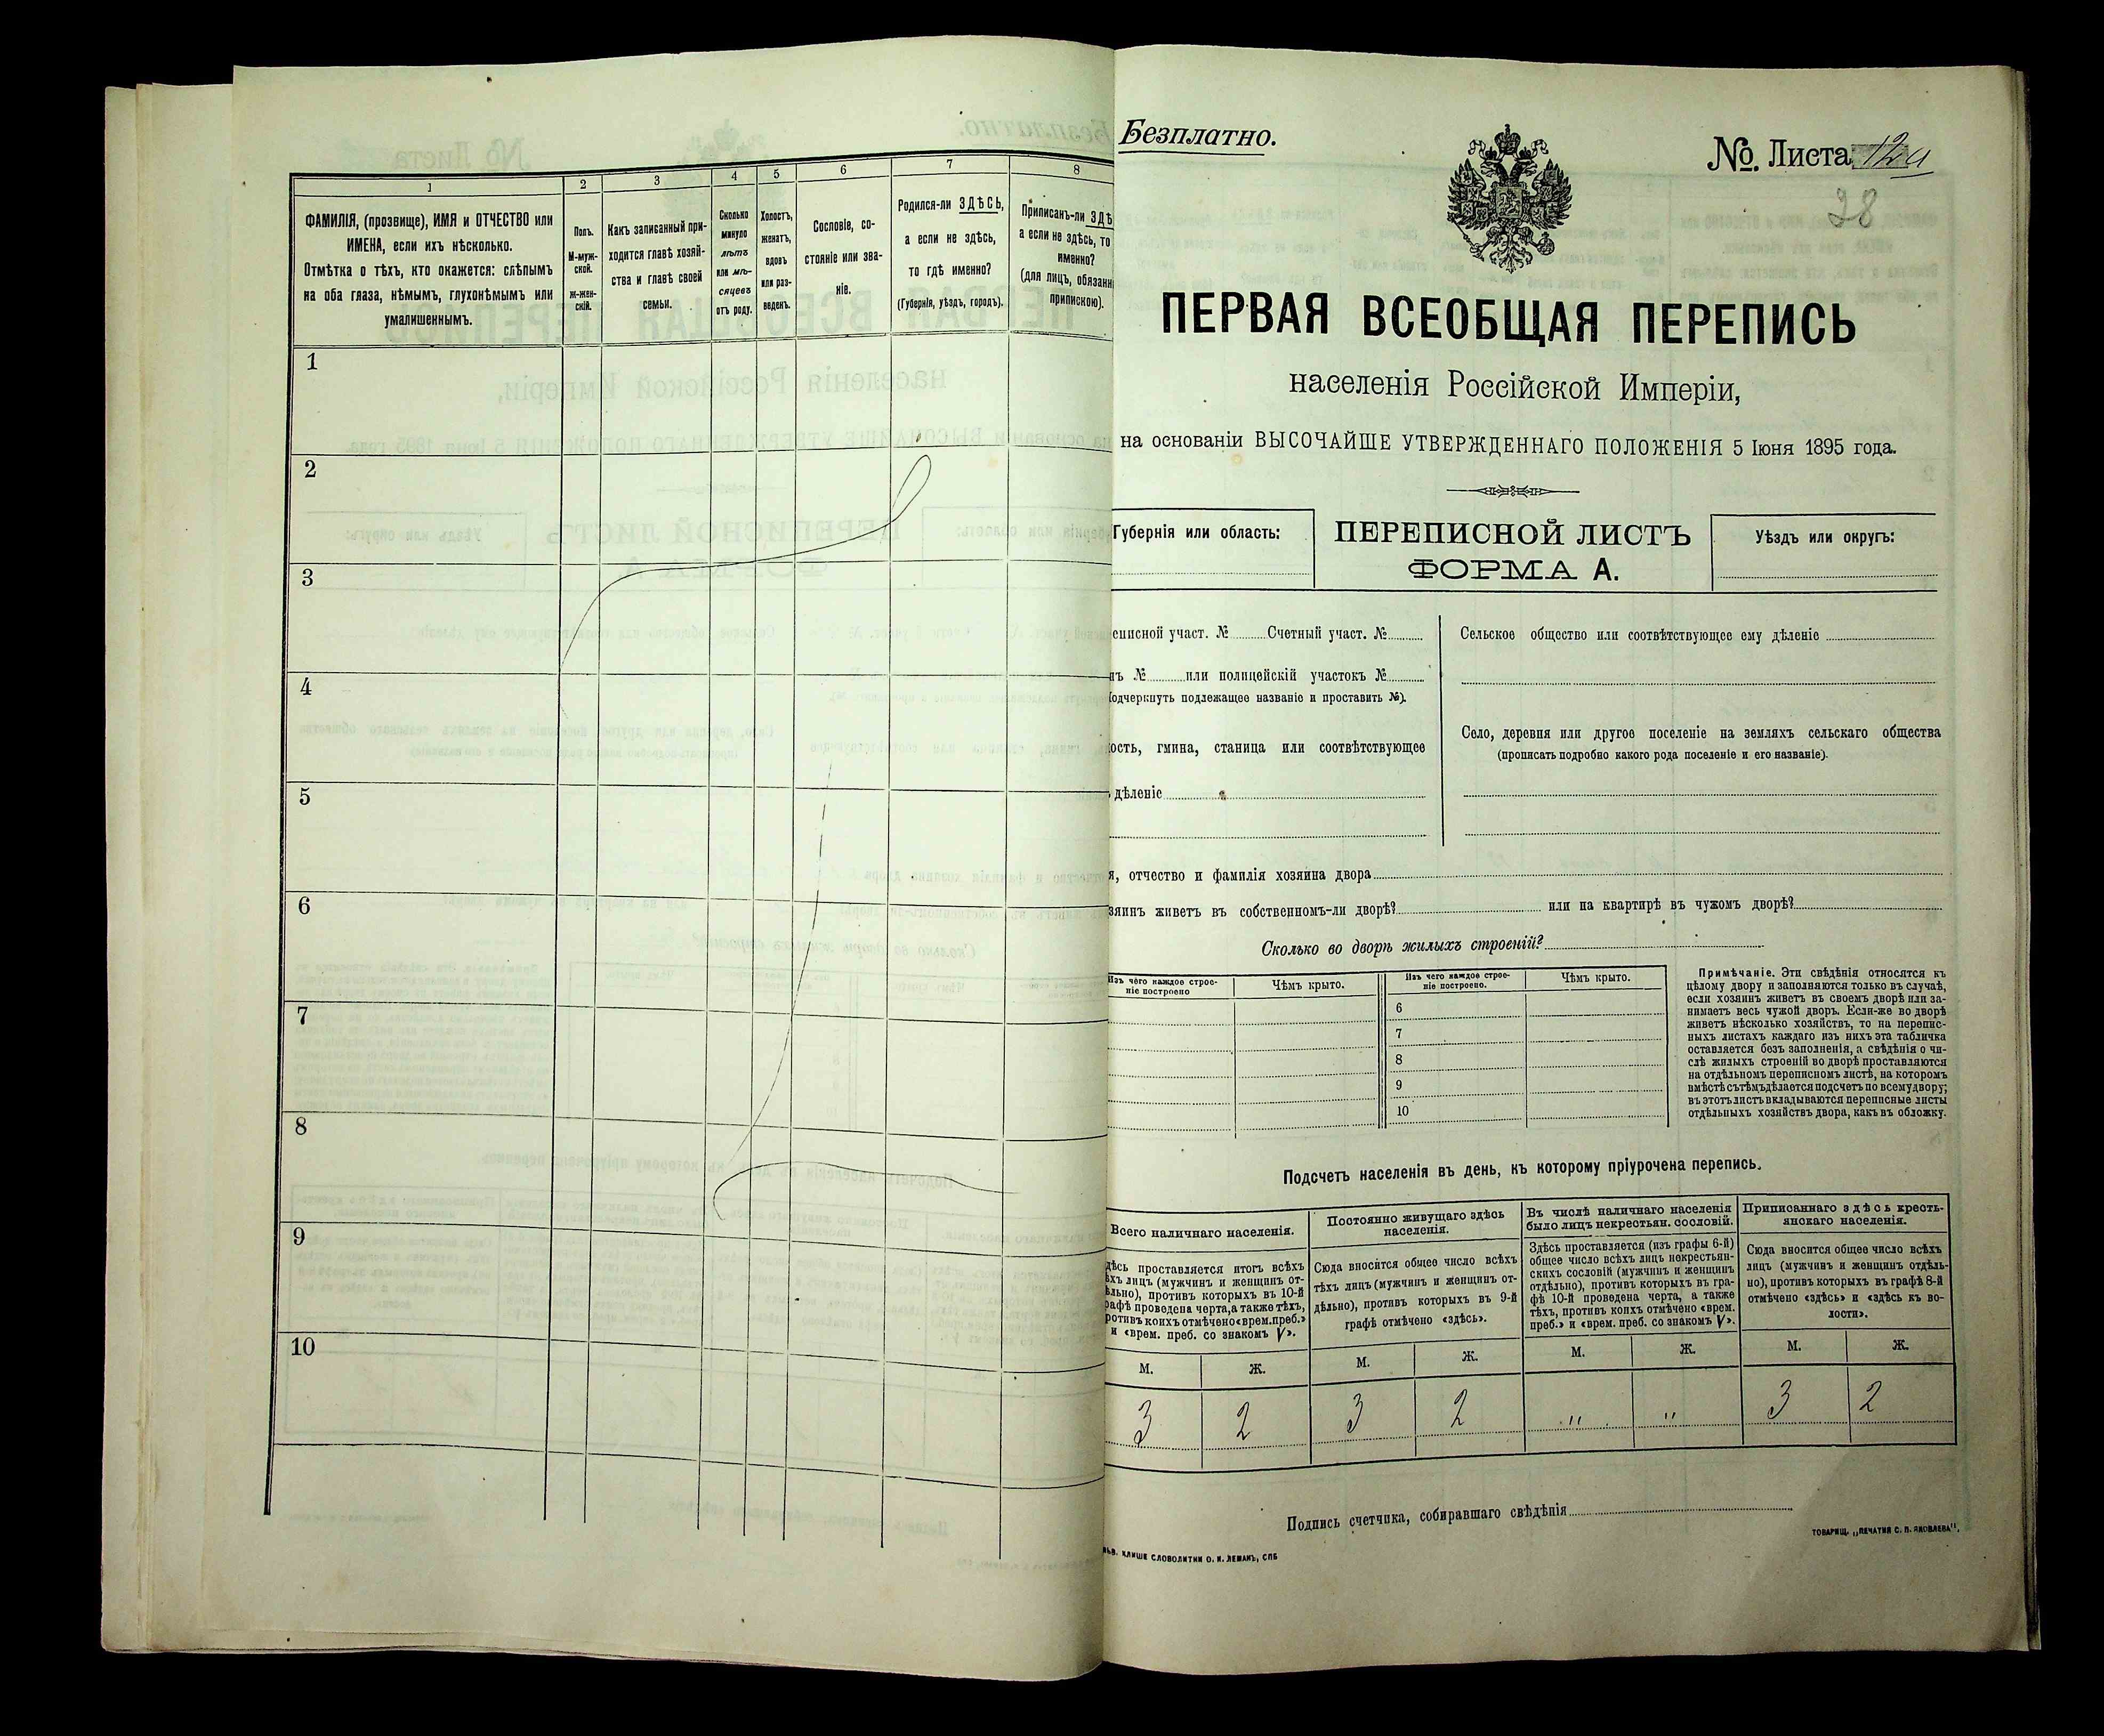 1
2
3
4
5
6
7
8
ФАМИЛІЯ, (прозвище), ИМЯ и ОТЧЕСТВО или
ИМЕНА, если ихъ нѣсколько.
Отмѣтка о тѣхъ, кто окажется: слѣпымъ
на оба глаза, нѣмымъ, глухонѣмымъ или
умалишеннымъ.
Полъ.
М-муж-
ской.
Ж-жен-
скій.
Какъ записанный при-
ходится главѣ хозяй-
ства и главѣ своей
семьи.
Сколько
минуло
лѣтъ
или мѣ-
сяцевъ
отъ роду.
Холостъ,
женатъ,
вдовъ
или раз-
веденъ.
Сословіе, со-
стояніе или зва-
ніе.
Родился-ли ЗДѢСЬ,
а если не здѣсь,
то гдѣ именно?
(Губернія, уѣздъ, городъ).
Приписанъ-ли ЗДѢ
а если не здѣсь, то
именно?
(для лицъ, обязанн
припискою).
1
2
3
4
5
6
7
8
9
10
Безплатно.
№ Листа 12а
28
ПЕРВАЯ ВСЕОБЩАЯ ПЕРЕПИСЬ
населенія Россійской Имперіи,
на основаніи ВЫСОЧАЙШЕ УТВЕРЖДЕННАГО ПОЛОЖЕНІЯ 5 Іюня 1895 года.
Губернія или область:
ПЕРЕПИСНОЙ ЛИСТЪ
ФОРМА А.
Уѣздъ или округъ:
еписной участ. № Счетный участ. №
нъ № или полицейскій участокъ №
одчеркнуть подлежащее названіе и проставить №).
ость, гмина, станица или соотвѣтствующее
дѣленіе
Сельское общество или соотвѣтствующее ему дѣленіе
Село, деревня или другое поселеніе на земляхъ сельскаго общества
(прописать подробно какого рода поселеніе и его названіе).
я, отчество и фамилія хозяина двора
зяинъ живетъ въ собственномъ-ли дворѣ? или на квартирѣ въ чужомъ дворѣ?
Сколько во дворѣ жилыхъ строеній?
Изъ чего каждое строе-
ніе построено
Чѣмъ крыто.
Изъ чего каждое строе-
ніе построено.
Чѣмъ крыто.
6
7
8
9
10
Примѣчаніе. Эти свѣдѣнія относятся къ
цѣлому двору и заполняются только въ случаѣ,
если хозяинъ живетъ въ своемъ дворѣ или за-
нимаетъ весь чужой дворъ. Если-же во дворѣ
живетъ нѣсколько хозяйствъ, то на перепис-
ныхъ листахъ каждаго изъ нихъ эта табличка
оставляется безъ заполненія, а свѣдѣнія о чи-
слѣ жилыхъ строеній во дворѣ проставляются
на отдѣльномъ переписномъ листѣ, на которомъ
вмѣстѣ съ тѣмъ дѣлается подсчетъ по всему двору;
въ этотъ листъ вкладываются переписные листы
отдѣльныхъ хозяйствъ двора, какъ въ обложку.
Подсчетъ населенія въ день, къ которому пріурочена перепись.
Всего наличнаго населенія.
Постоянно живущаго здѣсь
населенія.
Въ числѣ наличнаго населенія
было лицъ некрестьян. сословій.
Приписаннаго здѣсь кресть-
янскаго населенія.
дѣсь проставляется итогъ всѣхъ
ѣхъ лицъ (мужчинъ и женщинъ от-
ѣльно), противъ которыхъ въ 10-й
рафѣ проведена черта, а также тѣхъ,
ротивъ коихъ отмѣчено «врем. преб.»
и «врем. преб. со знакомъ V».
Сюда вносится общее число всѣхъ
тѣхъ лицъ (мужчинъ и женщинъ от-
дѣльно), противъ которыхъ въ 9-й
графѣ отмѣчено «здѣсь».
Здѣсь проставляется (изъ графы 6-й)
общее число всѣхъ лицъ некрестьян-
скихъ сословій (мужчинъ и женщинъ
отдѣльно), противъ которыхъ въ гра-
фѣ 10-й проведена черта, а также
тѣхъ, противъ коихъ отмѣчено «врем.
преб.» и «врем. преб. со знакомъ V».
Сюда вносится общее число всѣхъ
лицъ (мужчинъ и женщинъ отдѣль-
но), противъ которыхъ въ графѣ 8-й
отмѣчено «здѣсь» и «здѣсь къ во-
лости».
М. Ж. М. Ж. М. Ж. М. Ж.
3 2 3 2 " " 3 2
Подпись счетчика, собиравшаго свѣдѣнія
КЛИШЕ СЛОВОЛИТНИ О. И. ЛЕМАНЪ, СПБ
ТОВАРИЩ. „ПЕЧАТНЯ С. П. ЯКОВЛЕВА".